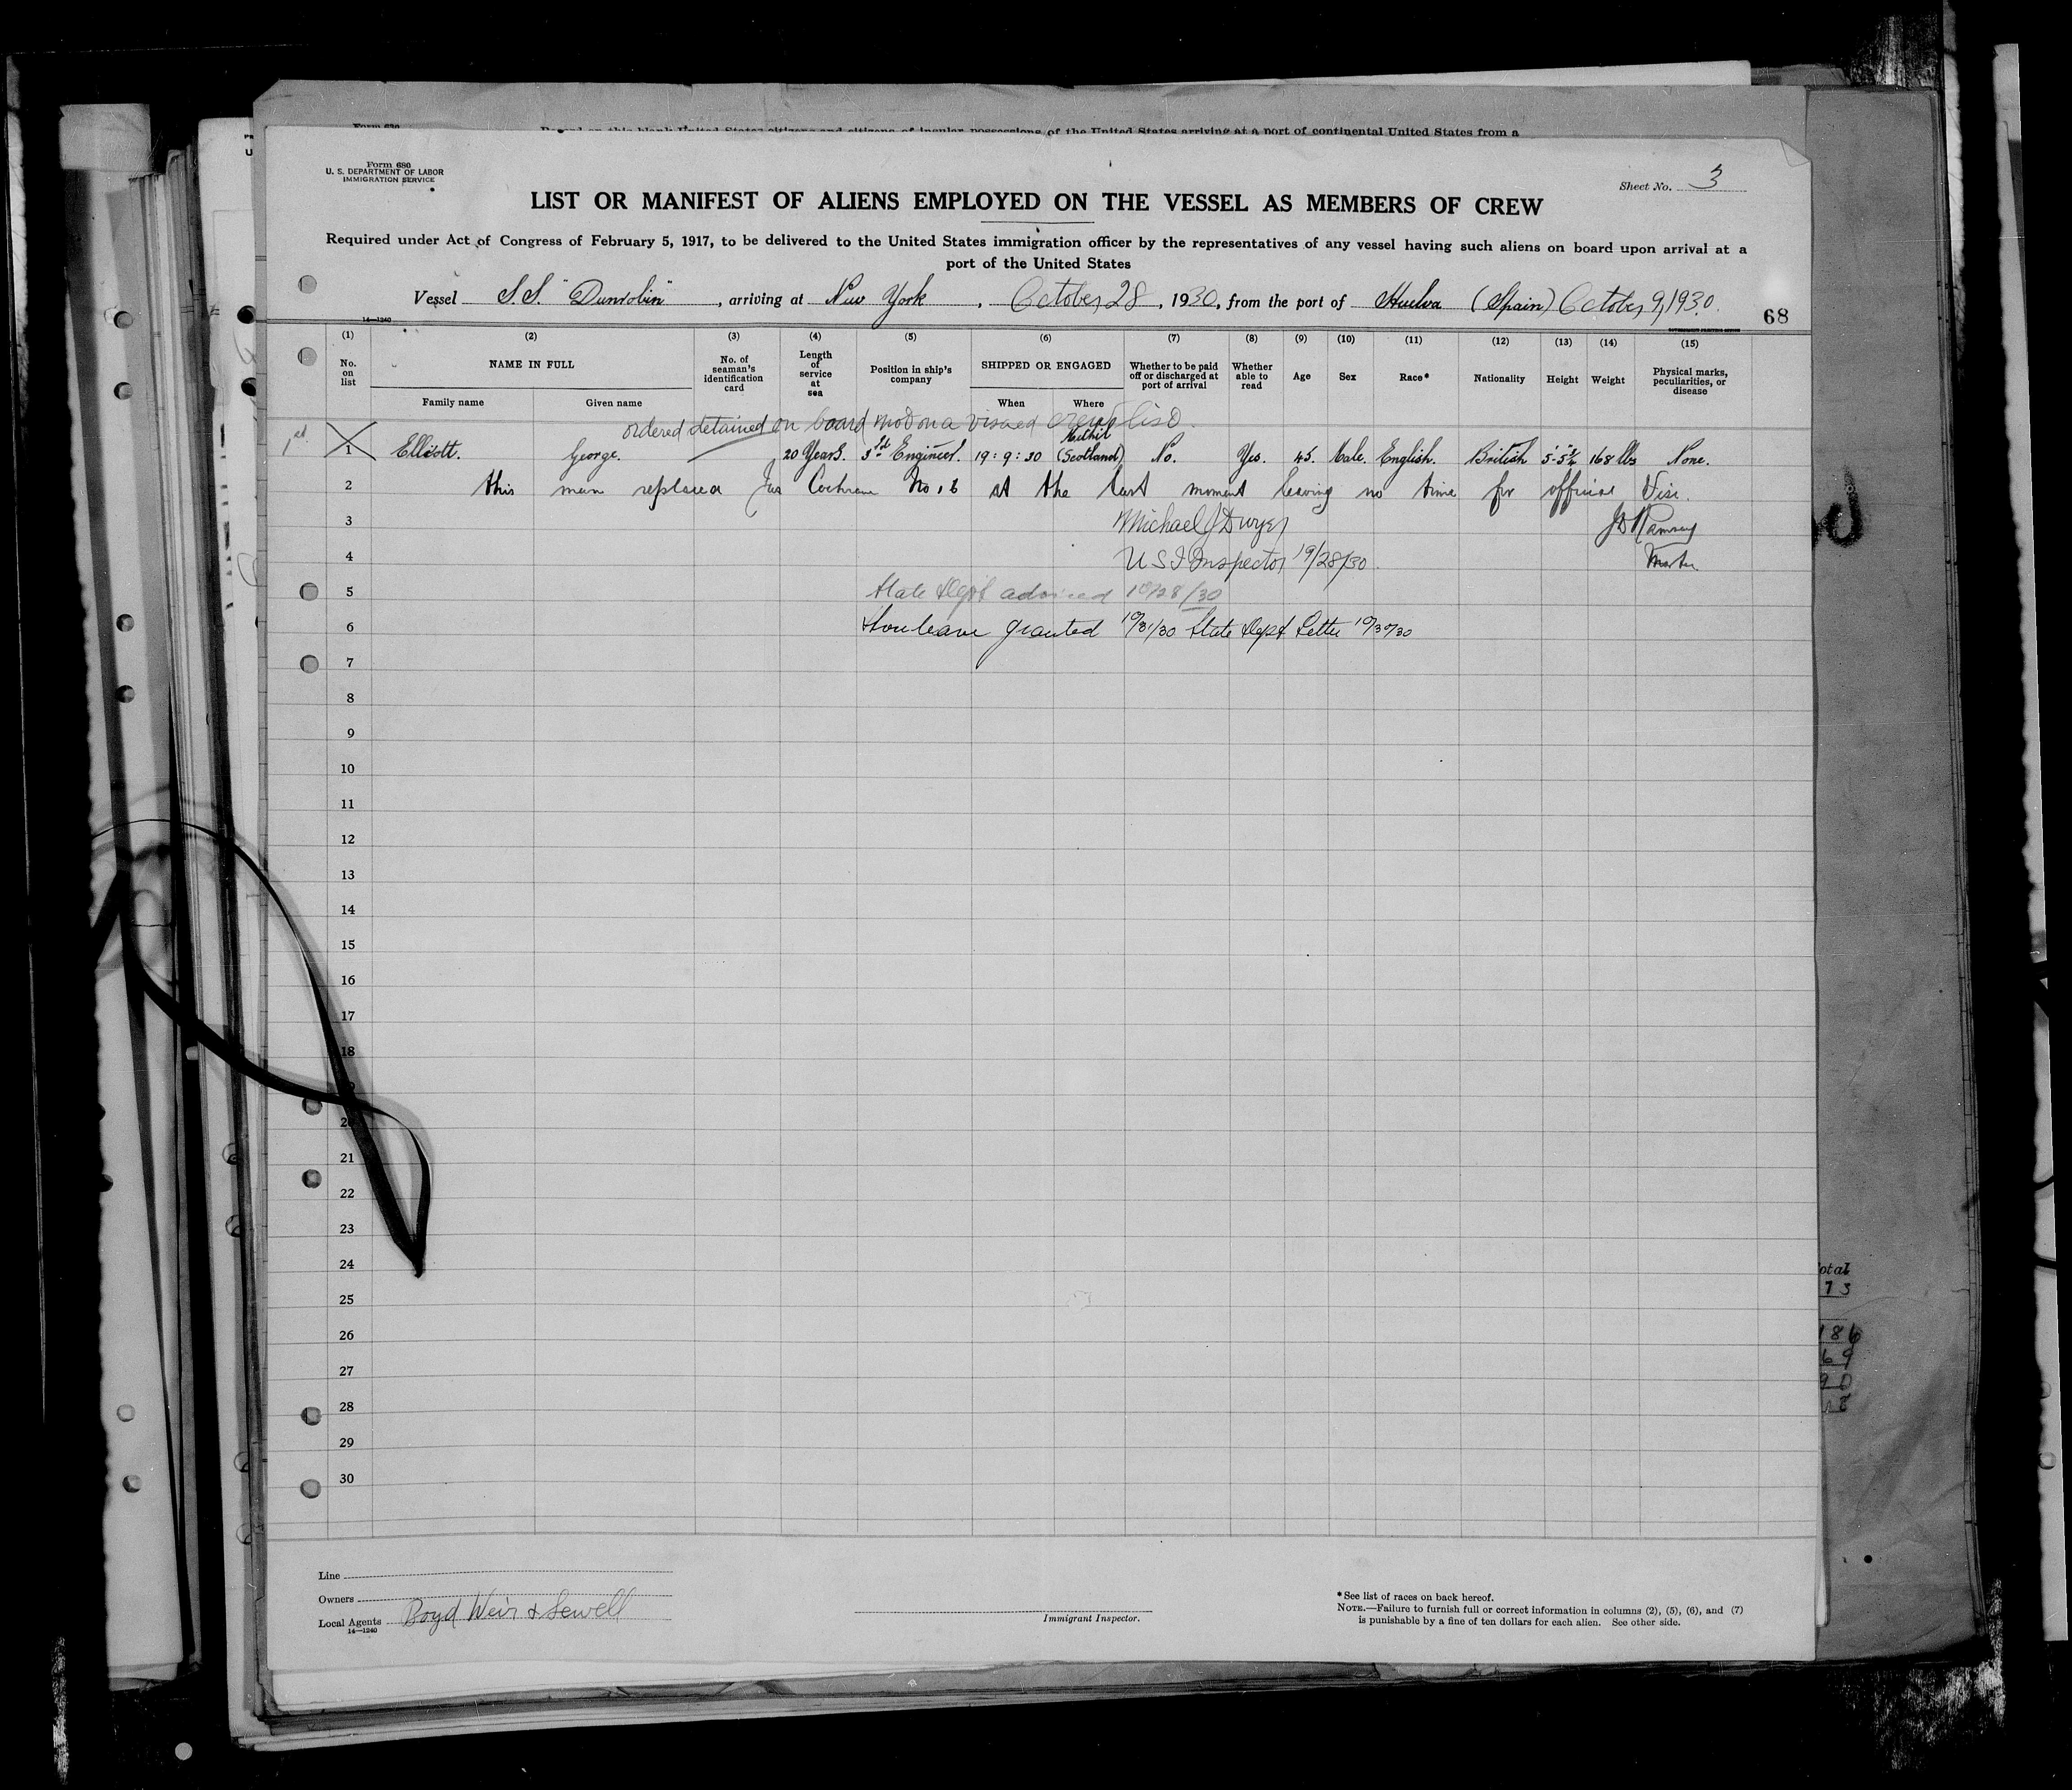 Form 630
Record on this blank United States citizens and citizens of insular possessions of the United States arriving at a port of continental United States from a
Form 680
U. S. DEPARTMENT OF LABOR
IMMIGRATION SERVICE
Sheet No. 3
LIST OR MANIFEST OF ALIENS EMPLOYED ON THE VESSEL AS MEMBERS OF CREW
Required under Act of Congress of February 5, 1917, to be delivered to the United States immigration officer by the representatives of any vessel having such aliens on board upon arrival at a
port of the United States
Vessel S.S. "Dunrobin", arriving at New York, October 28, 1930, from the port of Huelva (Spain) October 9, 1930.
14—1240
68
(1) (2) (3) (4) (5) (6) (7) (8) (9) (10) (11) (12) (13) (14) (15)
No. on list NAME IN FULL No. of seaman's identification card Length of service at sea Position in ship's company SHIPPED OR ENGAGED Whether to be paid off or discharged at port of arrival Whether able to read Age Sex Race* Nationality Height Weight Physical marks, peculiarities, or disease
Family name Given name When Where
ordered detained on board not on a visaed crew list
1 Elliott. George. 20 Years. 3rd Engineer. 19:9:30 Methil (Scotland) No. Yes. 45. Male. English. British 5-5¾ 168 lbs None.
2 this man replaced Jas Cochrane No, 6 at the last moment leaving no time for official Visi.
3 Michael J Dwyer
4 U S I Inspector 10/28/30 Master
5 State Dept advised 10/28/30
6 Shoreleave granted 10/31/30 State Dept Letter 10/30/30
7
8
9
10
11
12
13
14
15
16
17
18
20
21
22
23
24
25
26
27
28
29
30
Line
Owners
Local Agents Boyd Weir & Sewell
14—1240
Immigrant Inspector.
*See list of races on back hereof.
NOTE.—Failure to furnish full or correct information in columns (2), (5), (6), and (7)
is punishable by a fine of ten dollars for each alien. See other side.